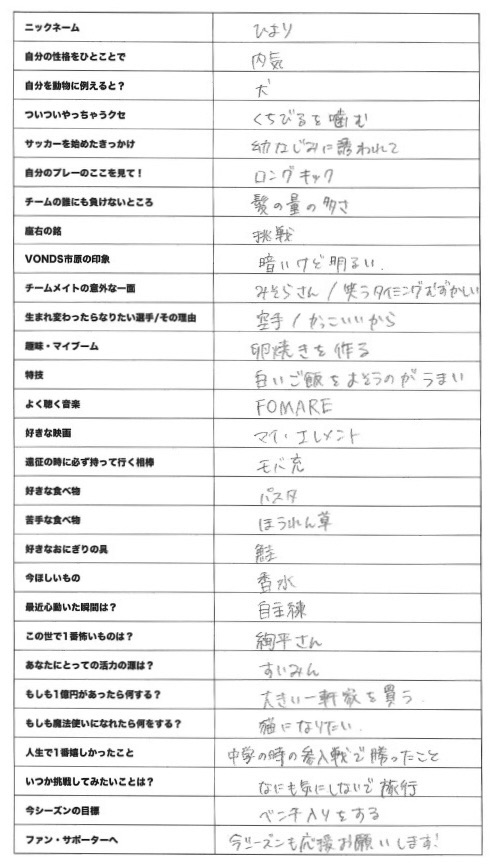 ニックネーム ひより
自分の性格をひとことで 内気
自分を動物に例えると？ 犬
ついついやっちゃうクセ くちびるを噛む
サッカーを始めたきっかけ 幼なじみに誘われて
自分のプレーのここを見て！ ロングキック
チームの誰にも負けないところ 髪の量の多さ
座右の銘 挑戦
VONDS市原の印象 暗いけど明るい.
チームメイトの意外な一面 みそらさん / 笑うタイミングむずかしい
生まれ変わったらなりたい選手/その理由 空手 / かっこいいから
趣味・マイブーム 卵焼きを作る
特技 白いご飯をよそうのがうまい
よく聴く音楽 FOMARE
好きな映画 マイ・エレメント
遠征の時に必ず持って行く相棒 モバ充
好きな食べ物 パスタ
苦手な食べ物 ほうれん草
好きなおにぎりの具 鮭
今ほしいもの 香水
最近心動いた瞬間は？ 自主練
この世で1番怖いものは？ 絢平さん
あなたにとっての活力の源は？ すいみん
もしも1億円があったら何する？ 大きい一軒家を買う.
もしも魔法使いになれたら何をする？ 猫になりたい.
人生で1番嬉しかったこと 中学の時の参入戦で勝ったこと
いつか挑戦してみたいことは？ なにも気にしないで旅行
今シーズンの目標 ベンチ入りをする
ファン・サポーターへ 今シーズンも応援お願いします!